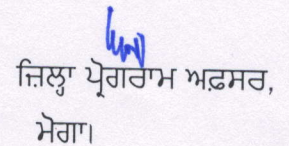 ਜ਼ਿਲ੍ਹਾ ਪ੍ਰੋਗਰਾਮ ਅਫ਼ਸਰ,
ਮੋਗਾ।